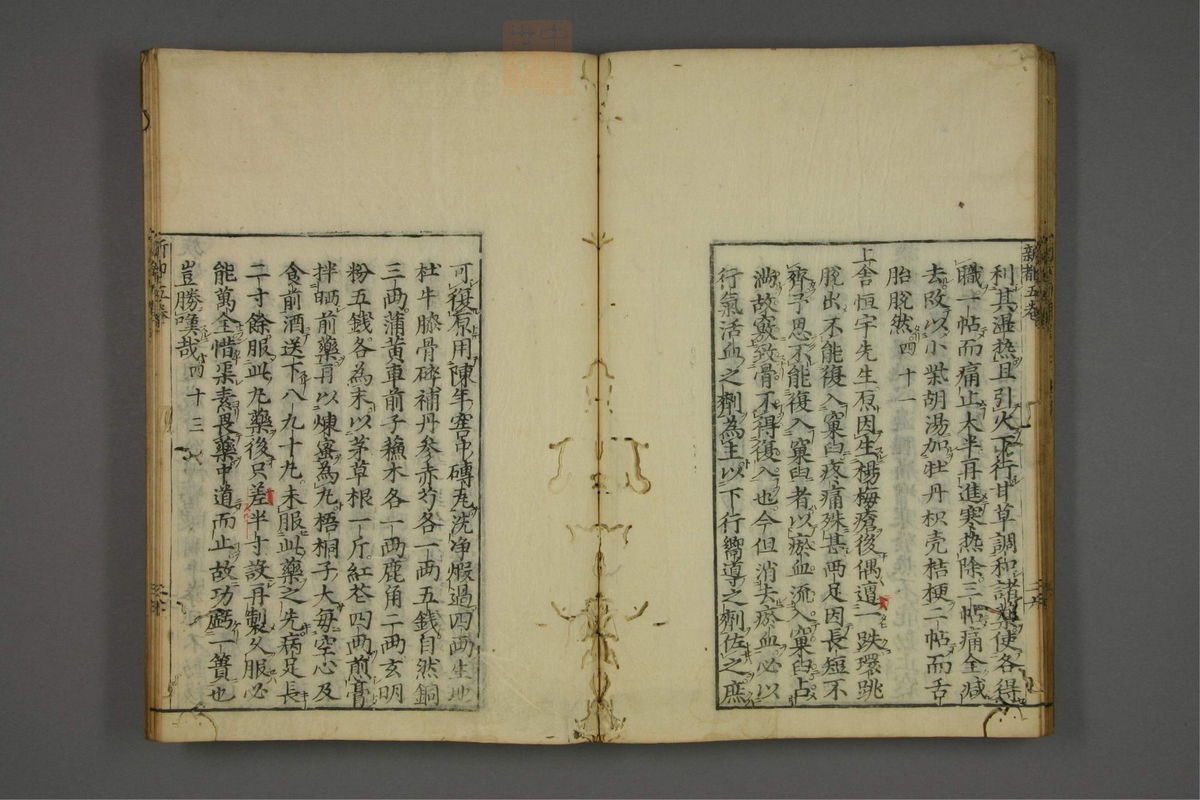 新都五卷
利其濕热且引火下行甘草調和諸藥使各得
職一帖而痛止大半再進寒热除三帖痛全减
去攻以小柴胡湯加牡丹枳壳桔梗二帖而舌
胎脫然 四十一
上舍恒宇先生原因生楊梅瘡後偶邅一跌環跳
脫出不能復入窠臼疼痛殊甚兩足因長短不
齊予思不能復入窠臼者以瘀血流入窠臼占
滿故竅致骨不得復入也今但消去瘀血必以
行氣活血之劑為主以下行嚮導之劑佐之庶
可復原用陳年窖中磚瓦洗净煅過四两生地
杜牛膝骨碎補丹參赤芍各一两五錢自然銅
三两蒲黄車前子蘓木各一两鹿角二两玄明
粉五錢各為末以茅草根一斤紅花四两煎膏
拌晒前藥再以煉蜜為丸梧桐子大每空心及
食前酒送下八九十丸未服此藥之先病足長
二寸餘服此丸藥後只差半寸設再製久服必
能萬全惜渠素畏藥中道而止故功虧一簣也
豈勝嘆哉 四十三